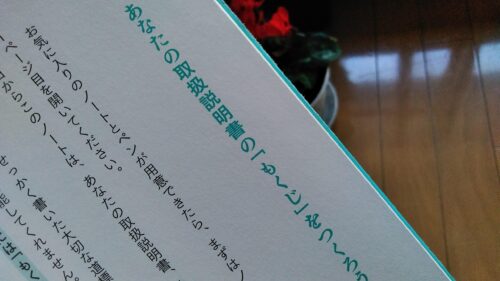 あなたの取扱説明書の「もくじ」をつくろう
お気に入りのノートとペンが用意できたら、まずはノ
ページ目を開いてください。
日からこのノートは、あなたの取扱説明書、
せっかく書いた大切な道標
能してくれません。
には「もく